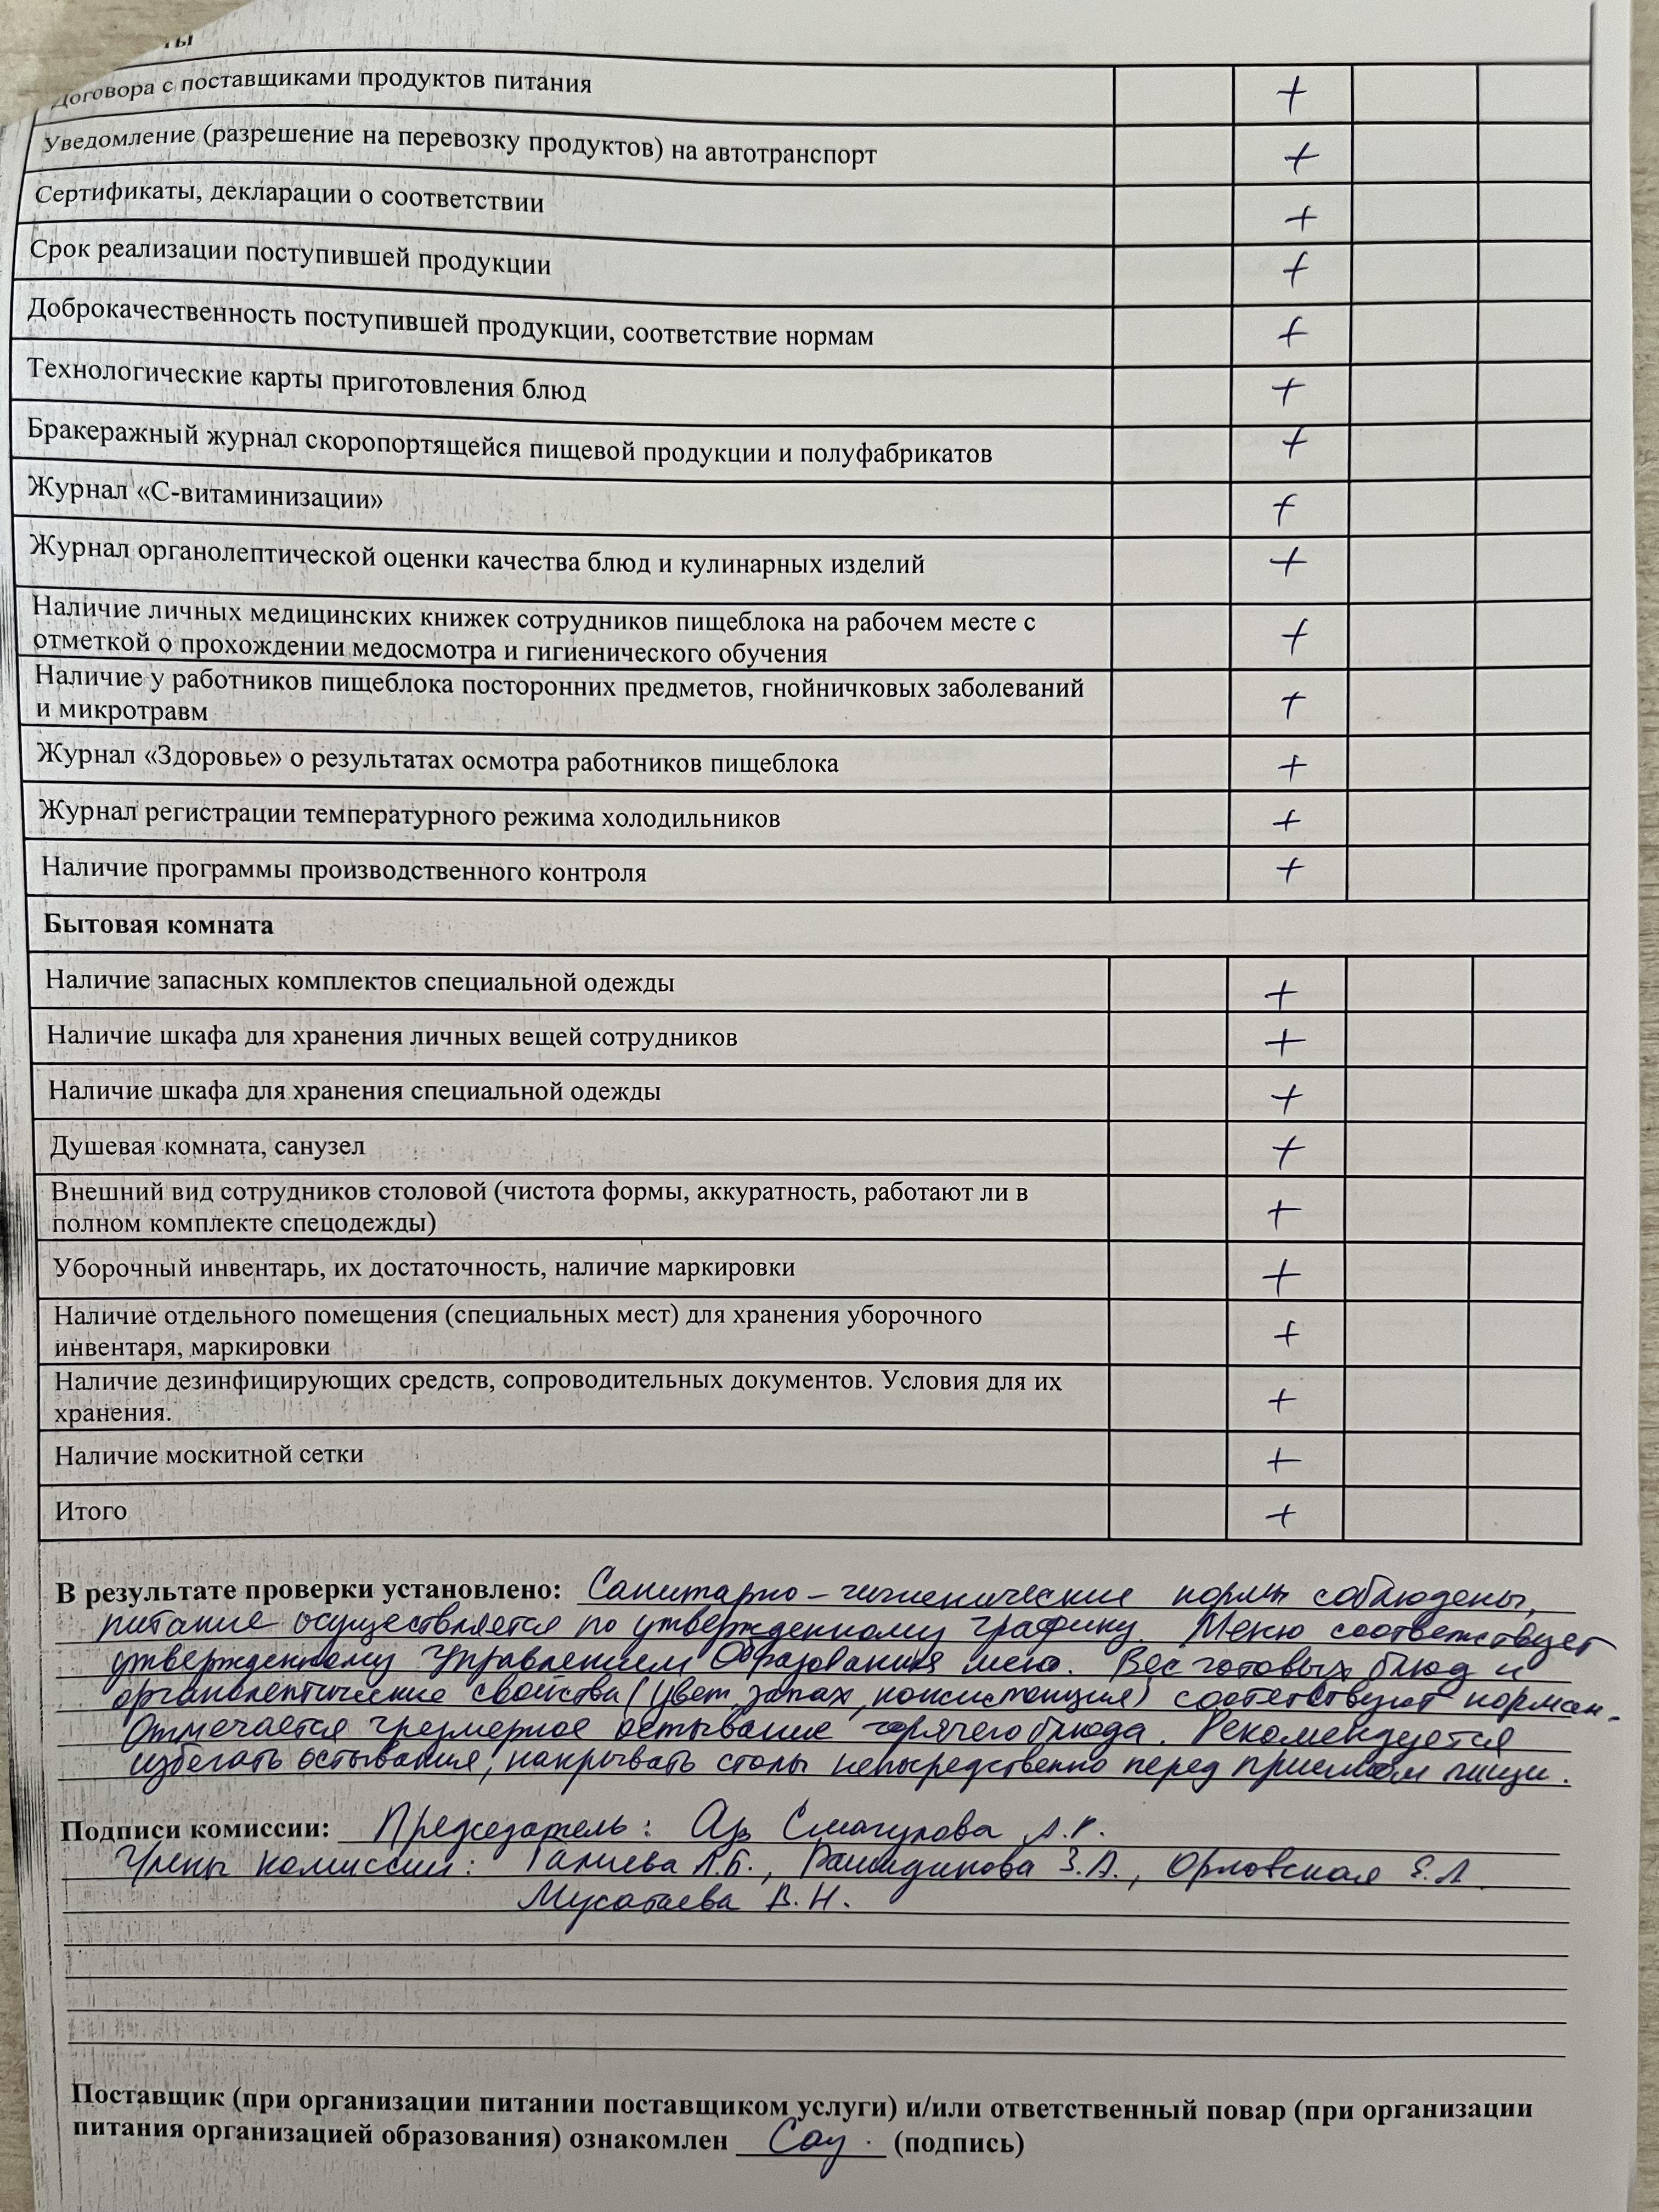 ты
Договора с поставщиками продуктов питания +
Уведомление (разрешение на перевозку продуктов) на автотранспорт +
Сертификаты, декларации о соответствии +
Срок реализации поступившей продукции +
Доброкачественность поступившей продукции, соответствие нормам +
Технологические карты приготовления блюд +
Бракеражный журнал скоропортящейся пищевой продукции и полуфабрикатов +
Журнал «С-витаминизации» +
Журнал органолептической оценки качества блюд и кулинарных изделий +
Наличие личных медицинских книжек сотрудников пищеблока на рабочем месте с
отметкой о прохождении медосмотра и гигиенического обучения +
Наличие у работников пищеблока посторонних предметов, гнойничковых заболеваний
и микротравм +
Журнал «Здоровье» о результатах осмотра работников пищеблока +
Журнал регистрации температурного режима холодильников +
Наличие программы производственного контроля +
Бытовая комната
Наличие запасных комплектов специальной одежды +
Наличие шкафа для хранения личных вещей сотрудников +
Наличие шкафа для хранения специальной одежды +
Душевая комната, санузел +
Внешний вид сотрудников столовой (чистота формы, аккуратность, работают ли в
полном комплекте спецодежды) +
Уборочный инвентарь, их достаточность, наличие маркировки +
Наличие отдельного помещения (специальных мест) для хранения уборочного
инвентаря, маркировки +
Наличие дезинфицирующих средств, сопроводительных документов. Условия для их
хранения. +
Наличие москитной сетки +
Итого +
В результате проверки установлено: Санитарно – гигиенические нормы соблюдены,
питание осуществляется по утвержденному графику. Меню соответствует
утвержденному Управлением Образования меню. Вес готовых блюд и
органолептические свойства (цвет, запах, консистенция) соответствуют нормам.
Отмечается чрезмерное остывание горячего блюда. Рекомендуется
избегать остывания, накрывать столы непосредственно перед приемом пищи.
Подписи комиссии: Председатель: Смагулова А.Р.
Члены комиссии: Галиева А.Б., Рашидинова З.А., Орловская Е.Л.
Мусатаева В.Н.
Поставщик (при организации питании поставщиком услуги) и/или ответственный повар (при организации
питания организацией образования) ознакомлен (подпись)